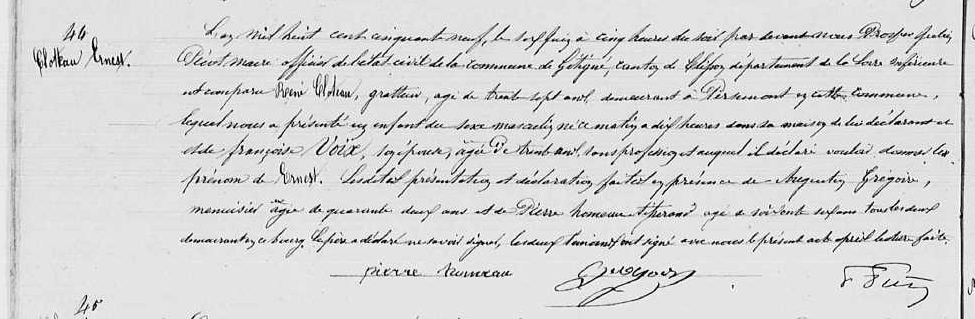 44
Cloteau Ernest.
L'an mil huit cent cinquante neuf, le six juin à cinq heures du soir par devant nous Prosper
maire officier de l'état civil de la commune de Gétigné, canton de Clisson département de la Loire inférieure
est comparu René Cloteau, agé de trente sept ans, demeurant à en cette commune,
lequel nous a présenté un enfant du sexe masculin né ce matin à dix heures dans sa maison de lui déclarant et
et de françoise Voix, son épouse, âgée de trente ans, sans profession et auquel il déclare vouloir donner le
prénom de Ernest. Lesdites présentation et déclaration faites en présence de Augustin Grégoire,
menuisier âgé de quarante deux ans et de Pierre agé de soixante six ans tous les deux
demeurant en ce bourg. Le père a déclaré ne savoir signer, les deux témoins ont signé avec nous le présent acte après lecture faite.
pierre
45